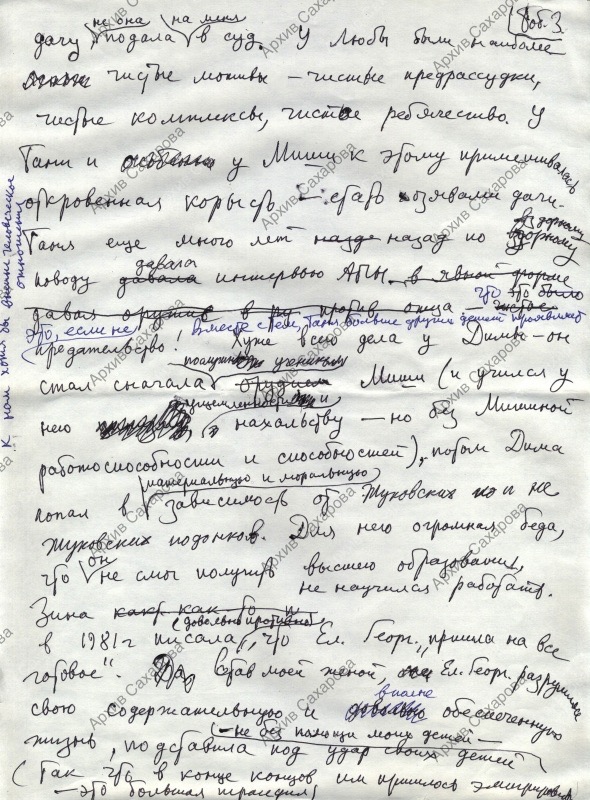 Доб. 3.
не она на меня
дачу подала в суд. У Любы были наиболее
чистые мотивы – чистые предрассудки,
чистые комплексы, чистое ребячество. У
Тани и особенно у Миши к этому примешивалась
откровенная корысть – стать хозяевами дачи.
Таня еще много лет назад назад по вздорному
давала
поводу давала интервью АПН, в явной форме
что это было
давая оружие в против отца
Это, если не Вместе с тем, Таня больше других детей проявляет
к нам хотя бы внешне человеческое отношение
предательство! Хуже всего дела у Димы – он
стал сначала Миши (и учился у
него нахальству – но без Мишиной
работоспособности и способностей), потом Дима
материальную и моральную
попал в зависимость от Жуковских и не
Жуковских подонков. Для него огромная беда,
он
что не смог получить высшего образования,
не научился работать.
Зина как-то
(довольно противно)
в 1981 г писала, что Ел. Георг. „пришла на все
готовое". Став моей женой, Ел. Георг. разрушила
вполне
свою содержательную и обеспеченную
(– не без помощи моих детей –
жизнь, подставила под удар своих детей
(Так что в конце концов им пришлось эмигрировать
– это большая трагедия)
Архив Сахарова